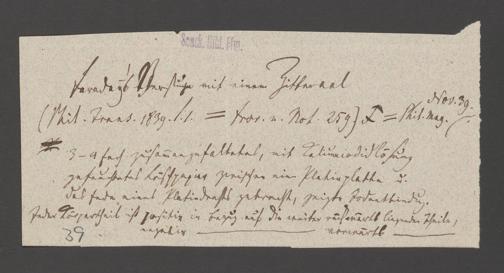 Senck. Bibl. Ffm.
Faraday's Versuche mit einem Zitteraal
(Phil. Trans. 1839. I. 1. = Fror. n. Not. 259) = Phil. Mag. Nov. 39.
3-4 fach zusammengefaltetes, mit Kaliumiodidlösung
gefeuchtetes Löschpapier zwischen eine Platinplatte u.
das Ende eines Platindrahts gebracht, zeigte Jodentbindung.
Jeder Körpertheil ist positiv in Bezug auf die weiter auswärts liegenden Theile,
negativ vorwärts
39